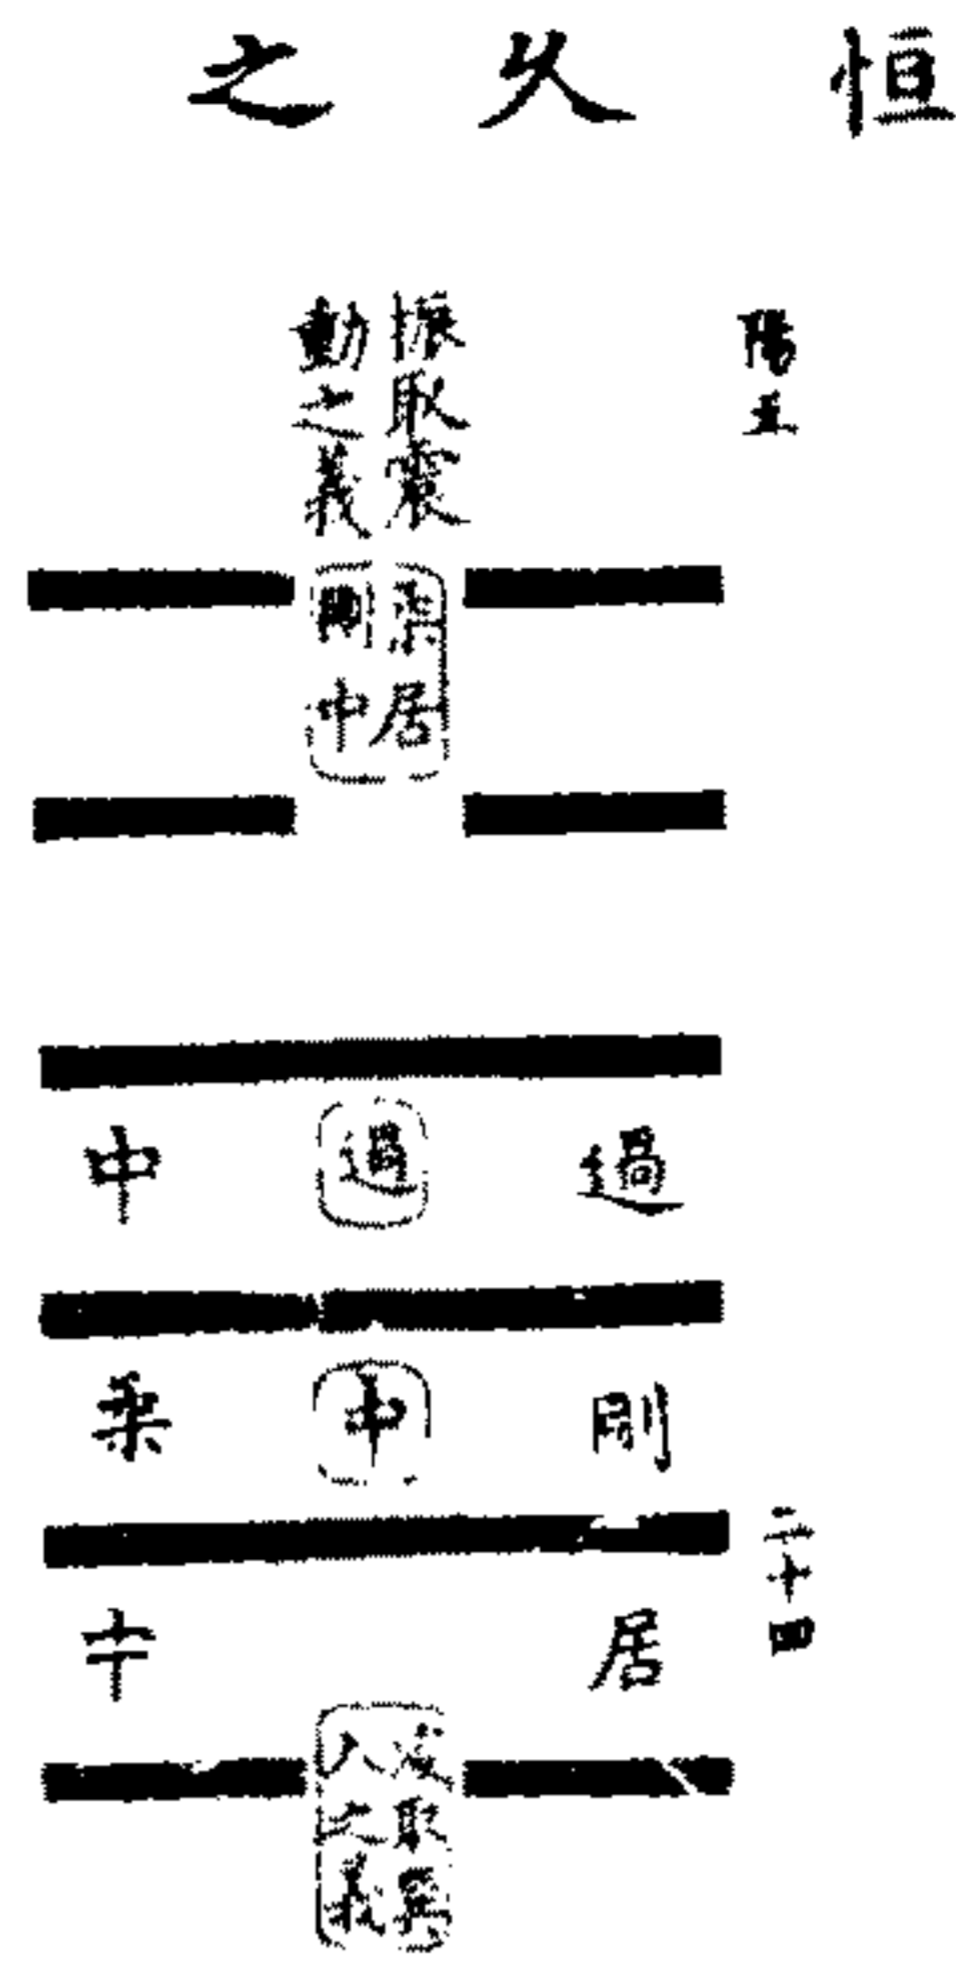 恒久之
陽五
振取震
動之義
柔居
剛中
過
過
中
剛
中
柔
十四
居
浚取巽
入之義